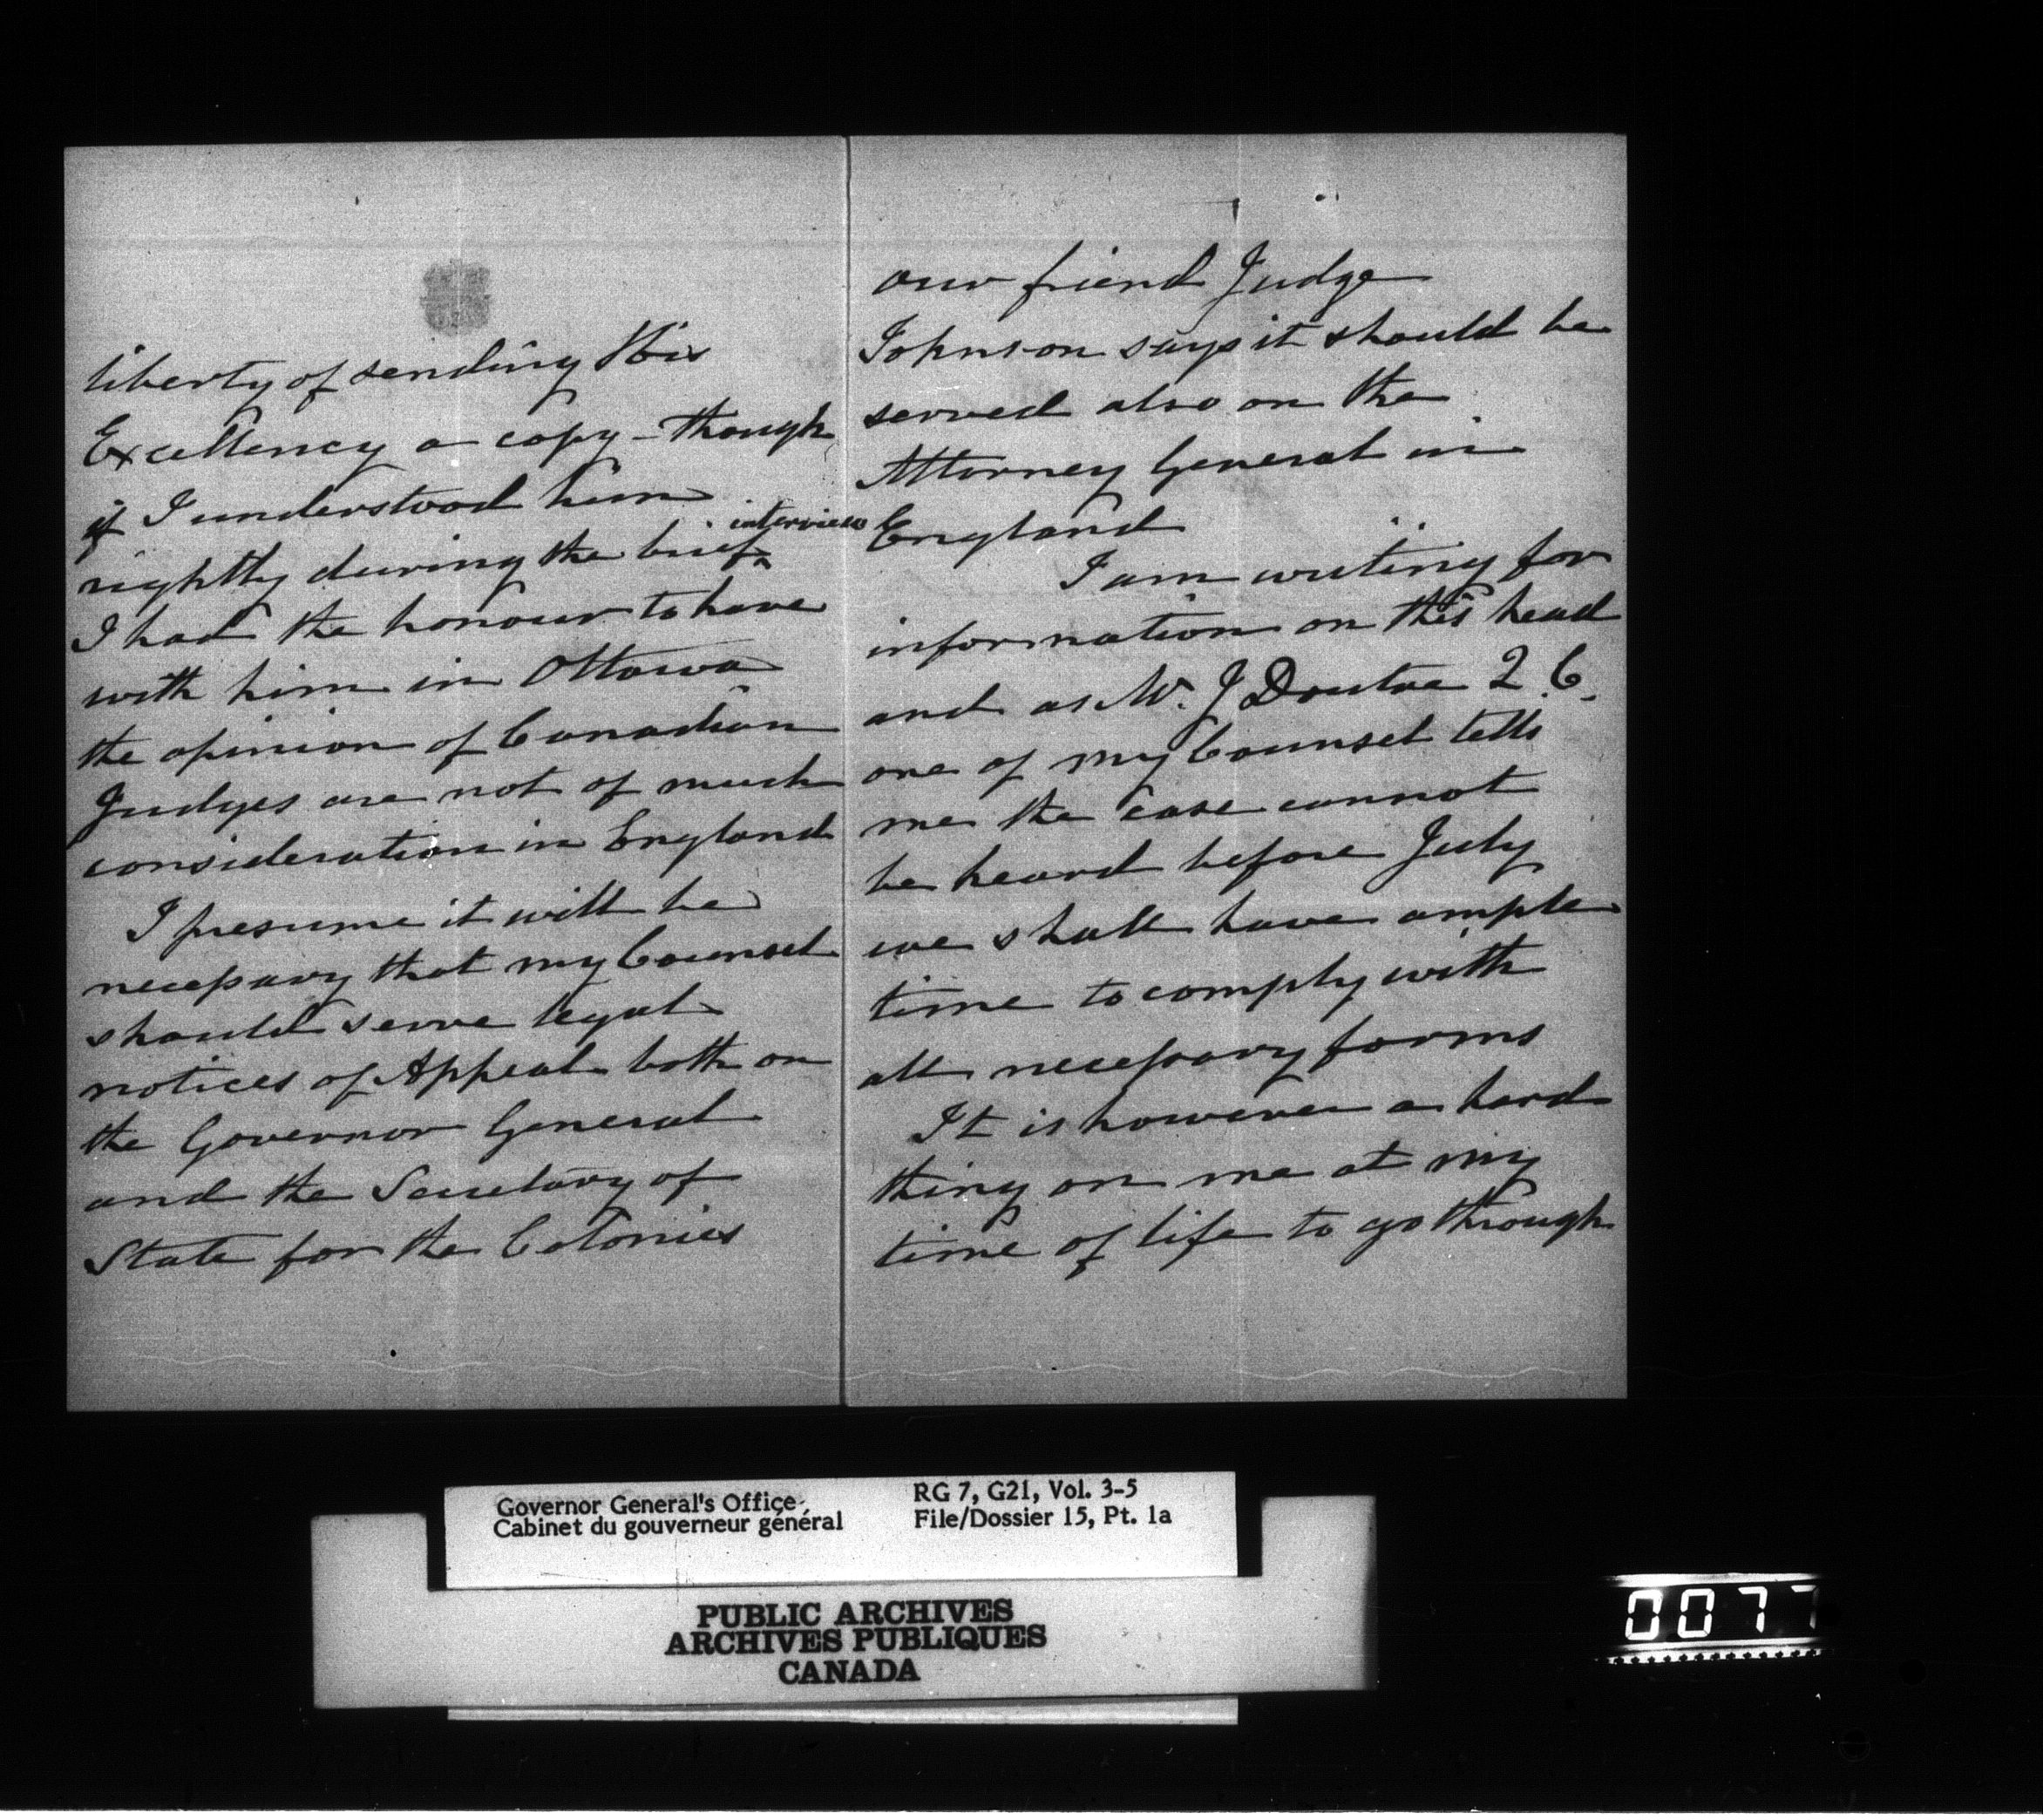 liberty of sending His
Excellency a copy - though
if I understood him
rightly during the brief interview
I had the honour to have
with him in Ottawa
the opinion of Canadian
Judges are not of much
consideration in England
I presume it will be
necessary that my Counsel
should serve legal
notices of Appeal both on
the Governor General
and the Secretary of
State for the Colonies
our friend Judge
Johnson says it should be
served also on the
Attorney General in
England
I am writing for
information on this head
and as Mr. J Doutre Q.C.
one of my Counsel tells
me the case cannot
be heard before July
we shall have ample
time to comply with
all necessary forms
It is however a hard
thing on me at my
time of life to go through
Governor General's Office
Cabinet du gouverneur général
RG 7, G21, Vol. 3-5
File/Dossier 15, Pt. 1a
PUBLIC ARCHIVES
ARCHIVES PUBLIQUES
CANADA
0077